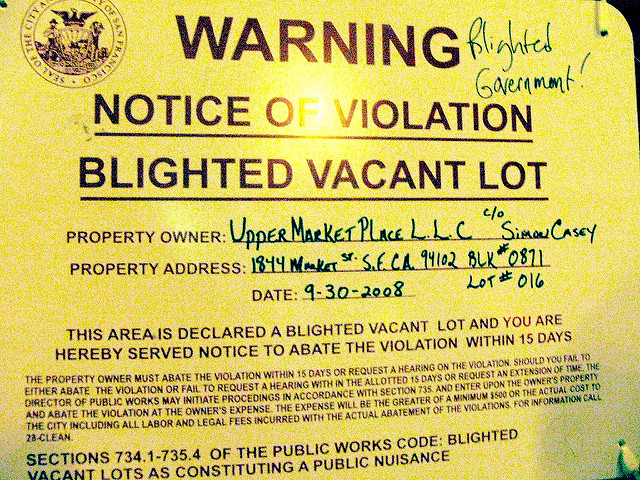 SEAL OF THE CITY AND COUNTY OF SAN FRANCISCO
WARNING
Blighted
Government!
NOTICE OF VIOLATION
BLIGHTED VACANT LOT
PROPERTY OWNER: UPPER MARKET PLACE L.L.C c/o SIMON CASEY
PROPERTY ADDRESS: 1844 MARKET ST. S.F. CA. 94102 BLK# 0871
LOT# 016
DATE: 9-30-2008
THIS AREA IS DECLARED A BLIGHTED VACANT LOT AND YOU ARE
HEREBY SERVED NOTICE TO ABATE THE VIOLATION WITHIN 15 DAYS
THE PROPERTY OWNER MUST ABATE THE VIOLATION WITHIN 15 DAYS OR REQUEST A HEARING ON THE VIOLATION. SHOULD YOU FAIL TO
EITHER ABATE THE VIOLATION OR FAIL TO REQUEST A HEARING WITH IN THE ALLOTTED 15 DAYS OR REQUEST AN EXTENSION OF TIME, THE
DIRECTOR OF PUBLIC WORKS MAY INITIATE PROCEDINGS IN ACCORDANCE WITH SECTION 735. AND ENTER UPON THE OWNER'S PROPERTY
AND ABATE THE VIOLATION AT THE OWNER'S EXPENSE. THE EXPENSE WILL BE THE GREATER OF A MINIMUM $500 OR THE ACTUAL COST TO
THE CITY INCLUDING ALL LABOR AND LEGAL FEES INCURRED WITH THE ACTUAL ABATEMENT OF THE VIOLATIONS. FOR INFORMATION CALL
28-CLEAN.
SECTIONS 734.1-735.4 OF THE PUBLIC WORKS CODE: BLIGHTED
VACANT LOTS AS CONSTITUTING A PUBLIC NUISANCE